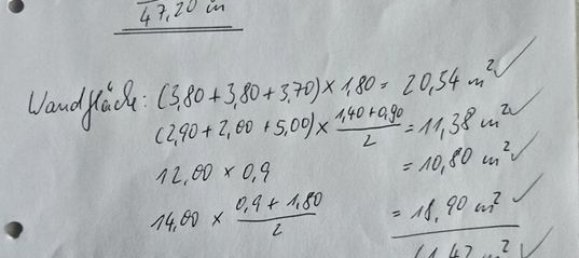 47,20 m
Wandfläche: (3,80+3,80+3,70)×1,80= 20,34 m²✓
(2,90+2,00+5,00)× (1,40+0,90)/2 = 11,38 m²✓
12,00 × 0,9 = 10,80 m²✓
14,00 × (0,9 + 1,80)/2 = 18,90 m²✓
61,42 m²